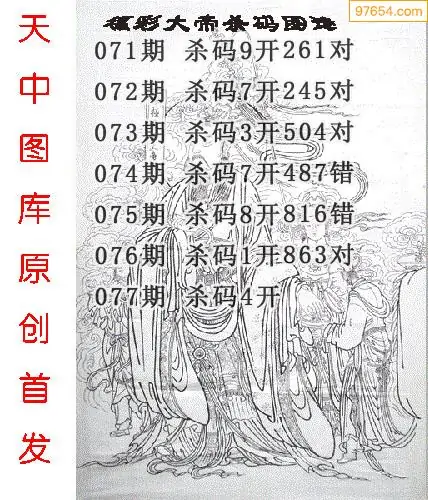 97654.com
福彩大帝杀码图迷
071期 杀码9开261对
072期 杀码7开245对
073期 杀码3开504对
074期 杀码7开487错
075期 杀码8开816错
076期 杀码1开863对
077期 杀码4开
天中图库原创首发